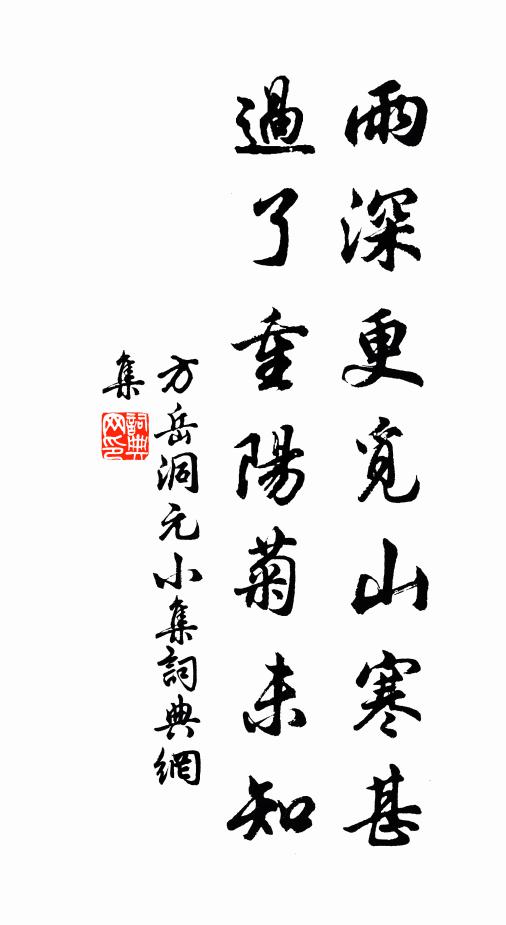 雨深更覓山寒甚
過了重陽菊未知
方岳洞元小集詞典網
集
詞典网印